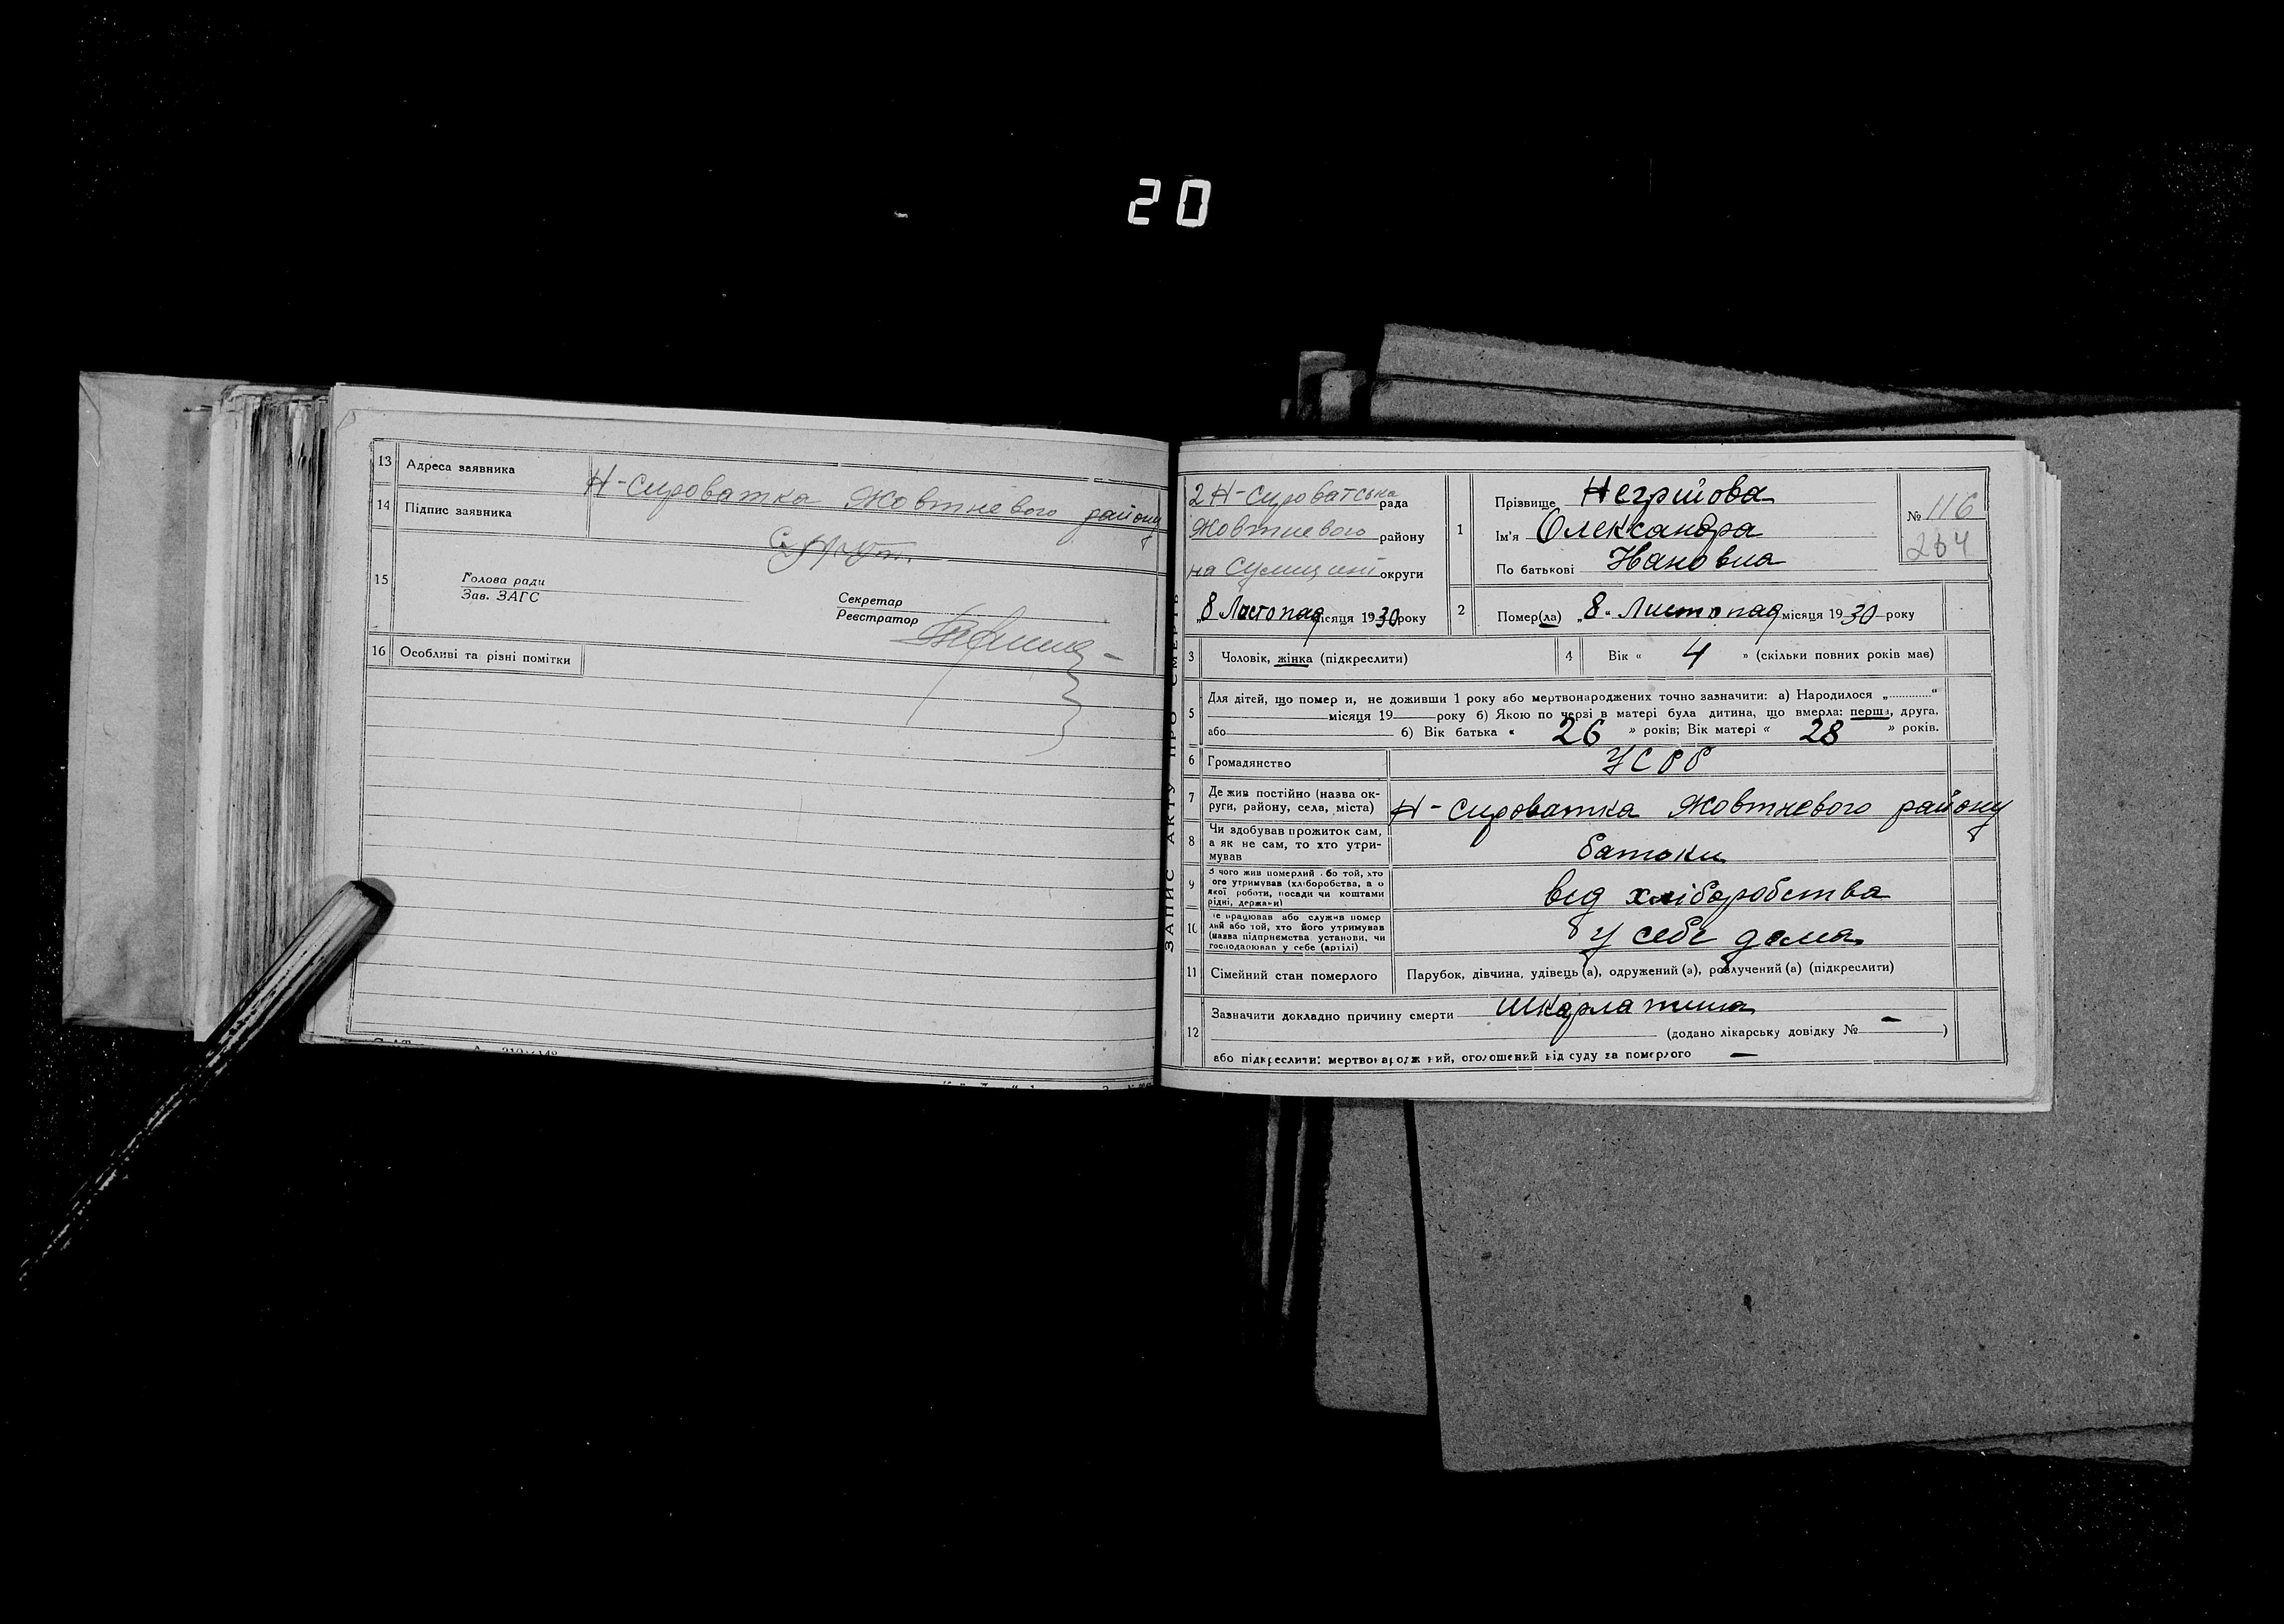 20
13 Адреса заявника Н-Сироватка Жовтневого району
14 Підпис заявника
15 Голова ради
Зав. ЗАГС
Секретар
Реєстратор
16 Особливі та різні помітки
ЗАПИС АКТУ ПРО СМЕРТЬ
2 Н-Сироватська рада
Жовтневого району
на Сумщині округи
„8 Листопад місяця 1930 року
1 Прізвище Негрийова
Ім'я Олександра
По батькові Івановна
№ 116
234
2 Помер(ла) „8“ Листопад місяця 1930 року
3 Чоловік, жінка (підкреслити)
4 Вік « 4 » (скільки повних років має)
5 Для дітей, що помер и, не доживши 1 року або мертвонароджених точно зазначити: а) Народилося „............“
місяця 19 року б) Якою по черзі в матері була дитина, що вмерла: перша, друга,
або б) Вік батька « 26 » років; Вік матері « 28 » років.
6 Громадянство УСРР
7 Де жив постійно (назва ок-
руги, району, села, міста) Н-Сироватка Жовтневого району
8 Чи здобував прожиток сам,
а як не сам, то хто утри-
мував батьки
9 З чого жив померлий бо той, хто
ого утримував (хліборобства, а о
якої роботи, посади чи коштами
рідні, держави) від хліборобства
10 е працював або служив помер
лий або той, хто його утримував
(назва підприємства установи, чи
господарював у себе (артілі) у себе дома
11 Сімейний стан померлого Парубок, дівчина, удівець (а), одружений (а), розлучений (а) (підкреслити)
12 Зазначити докладно причину смерти шкарлатина
(додано лікарську довідку № — )
або підкреслити: мертвонародж ний, оголошений від суду за померлого —